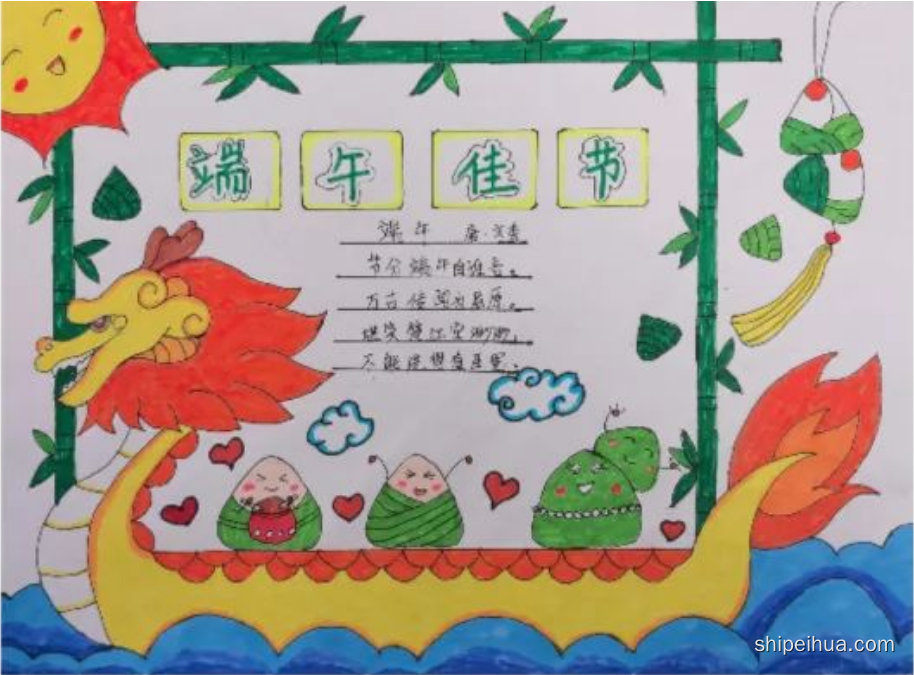 端午佳节
端午 唐·文秀
节分端午自谁言。
万古传闻为屈原。
江空渺渺,
不能洗得直臣冤。
shipeihua.com